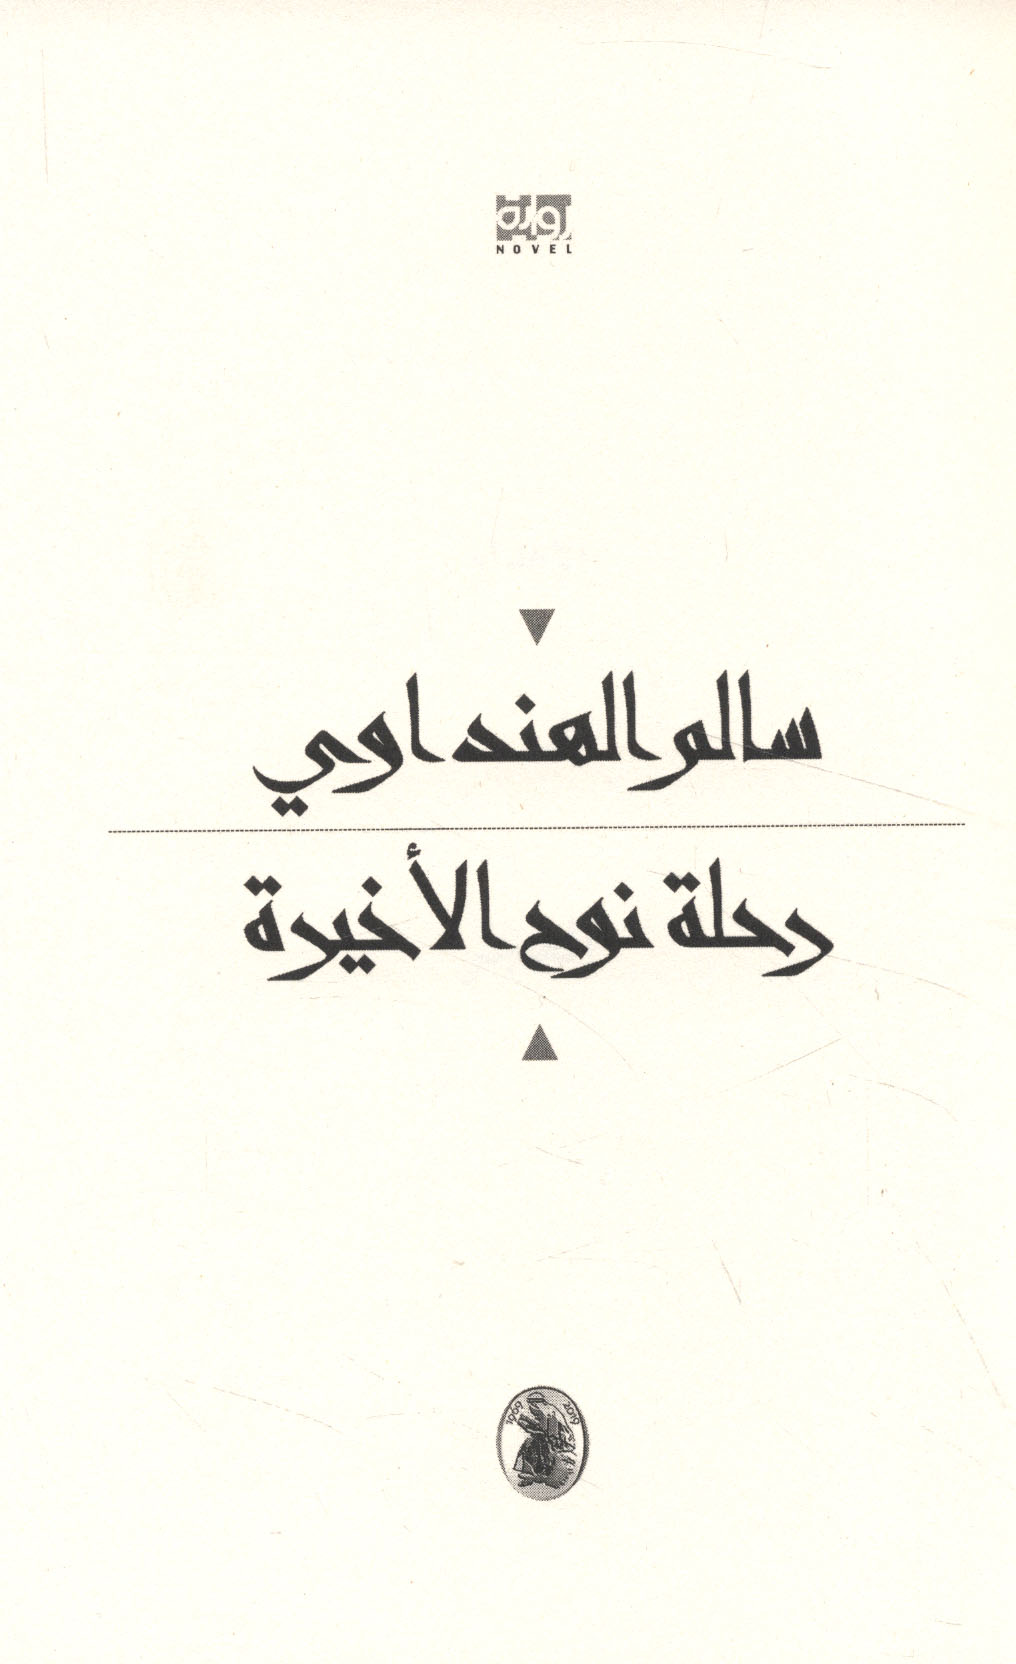 رواية
NOVEL
سالم الهنداوي
رحلة نوح الأخيرة
1969 2019